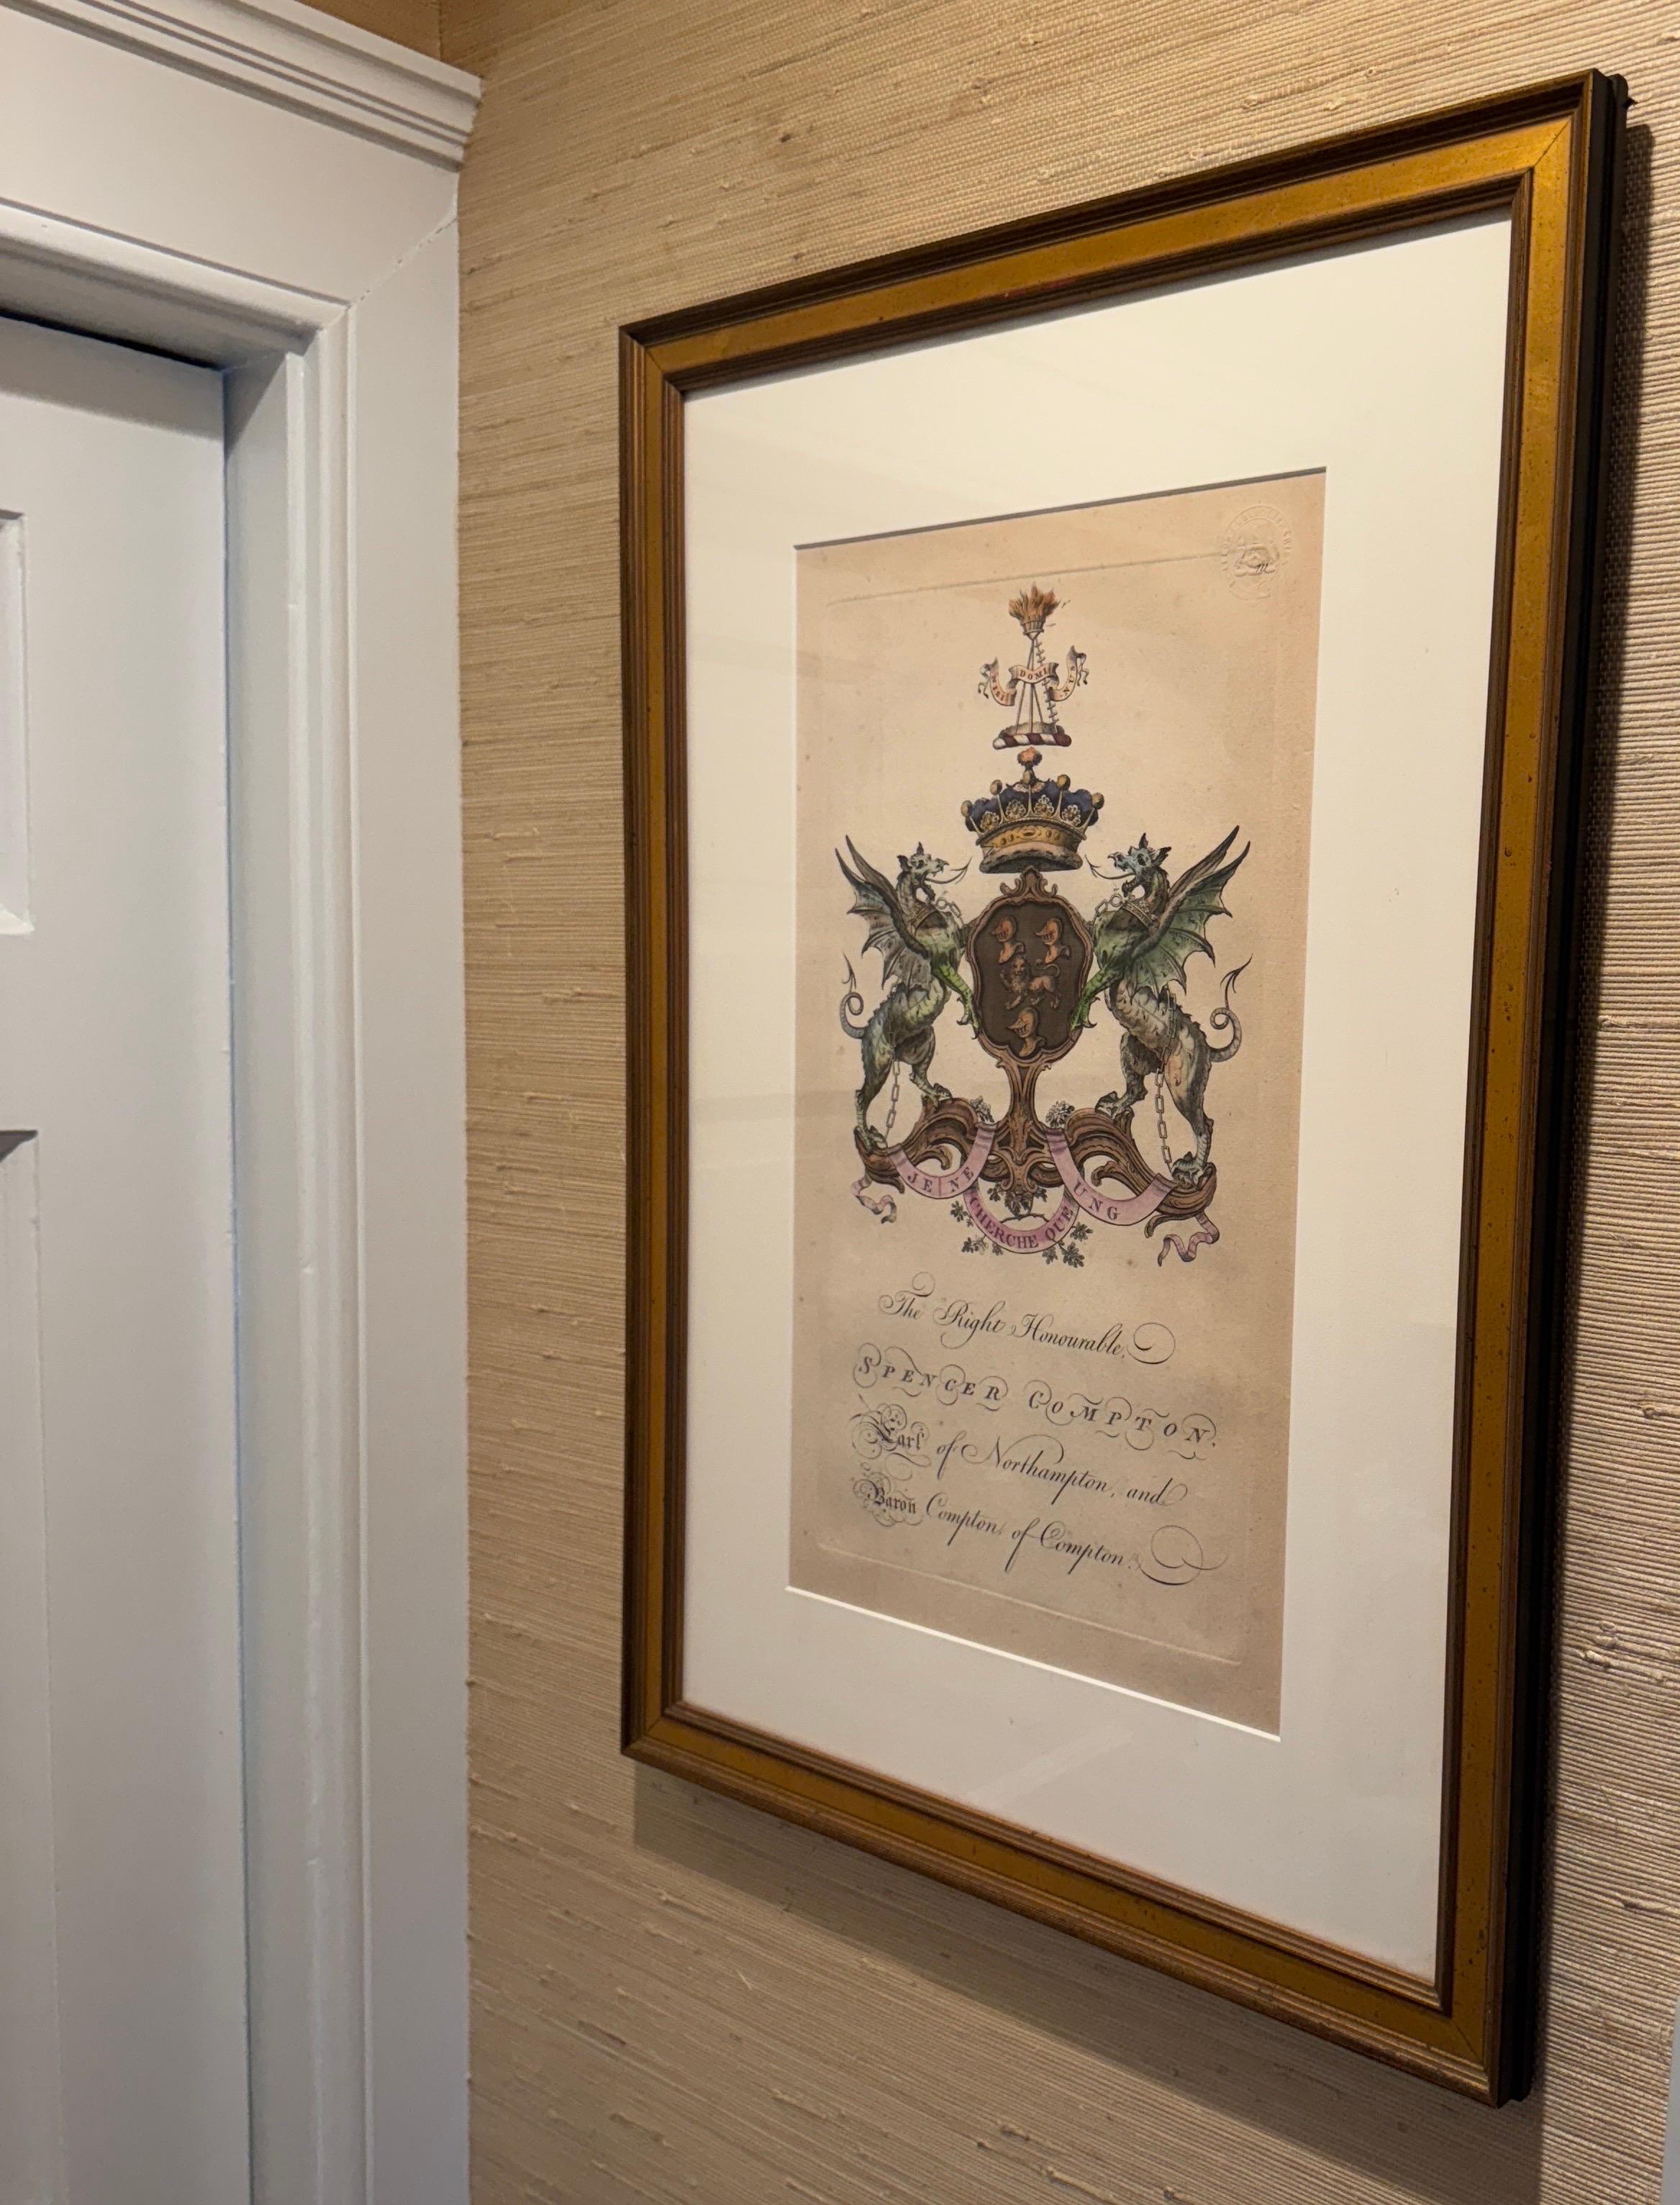 NISI DOMINUS
JE NE CHERCHE QUE UNG
The Right Honourable,
SPENCER COMPTON.
Earl of Northampton, and
Baron Compton, of Compton.